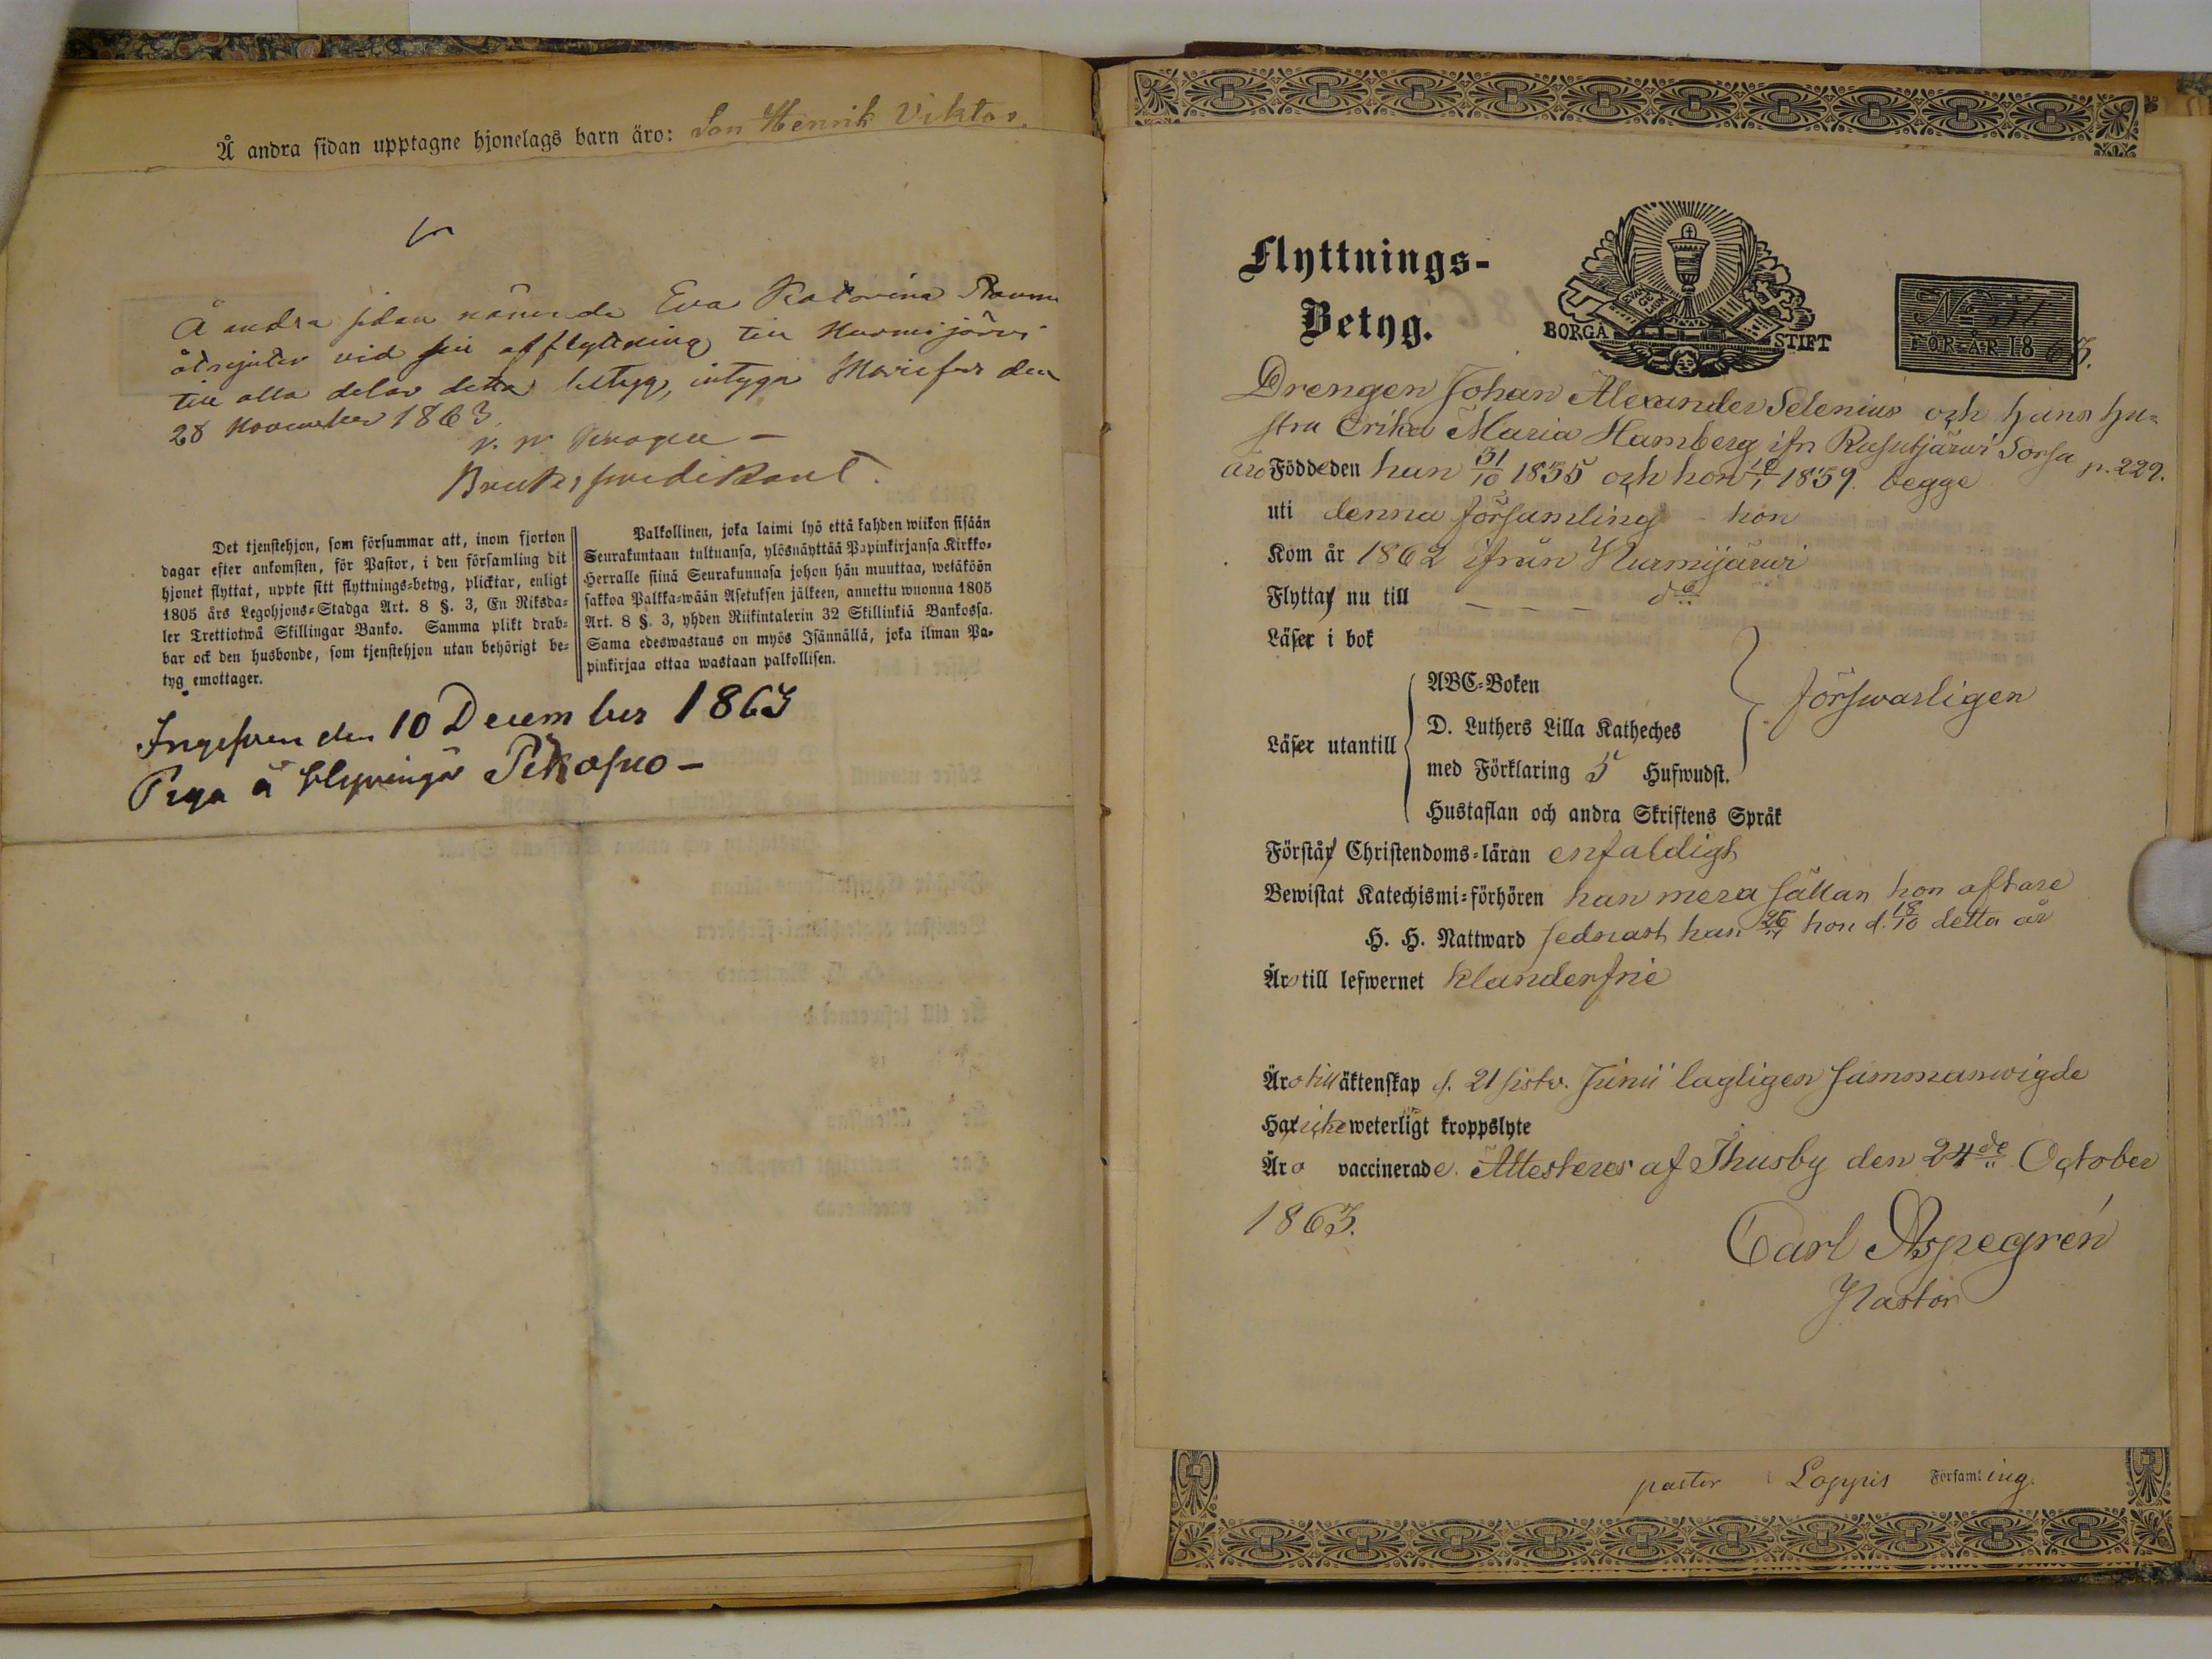 Å andra sidan upptagne hjonelags barn äro: Son Henrik Viktor.
Å andra sidan nämnde Eva Katarina
åtnjuter vid sin afflyttning till Nurmijärvi
till alla delar detta betyg, intygar Mariefors den
28 November 1863.
Brukspredikant.
Det tjenstehjon, som försummar att, inom fjorton
dagar efter ankomsten, för Pastor, i den församling dit
hjonet flyttat, uppte sitt flyttnings=betyg, plicktar, enligt
1805 års Legohjons=Stadga Art. 8 §. 3, En Riksda=
ler Trettiotwå Skillingar Banko. Samma plikt drab=
bar ock den husbonde, som tjenstehjon utan behörigt be=
tyg emottager.
Palkollinen, joka laimi lyö että kahden wiikon sisään
Seurakuntaan tultuansa, ylösnäyttää Papinkirjansa Kirkko=
Herralle siinä Seurakunnasa johon hän muuttaa, wetäköön
sakkoa Palkka=wään Asetuksen jälkeen, annettu wuonna 1805
Art. 8 §. 3, yhden Riikintalerin 32 Skillinkiä Bankossa.
Sama edeswastaus on myös Isännällä, joka ilman Pa=
pinkirjaa ottaa wastaan palkollisen.
den 10 December 1863
Piga å
Flyttnings=
Betyg.
EVANGELIUM
BORGÅ STIFT
No 51
FÖR ÅR 1863.
Drengen Johan Alexander Selenius och hans hu=
stru Erika Maria Hamberg ifr Rusutjärwi Sorsa p. 229.
äro Födde den han 31/10 1835 och hon 1859. begge
uti denna församling hon
Kom år 1862 ifrån Nurmijärwi
Flytta nu till – – – do
Läser i bok
Läser utantill
ABC=Boken
D. Luthers Lilla Katheches
med Förklaring 5 Hufwudst.
Hustaflan och andra Skriftens Språk
försvarligen
Förstår Christendoms=läran enfaldigt
Bewistat Katechismi=förhören han mera sällan hon oftare
H. H. Nattward sednast han hon d. 18/10 detta år
Äro till lefwernet klanderfrie
Äro till äktenskap d. 21 sistv. Junii lagligen sammanwigde
Har icke weterligt kroppslyte
Äro vaccinerade. Attesteres af Thusby den 24de October
1863.
Carl Aspegrén
Pastor
pastor i Loppis Församling.